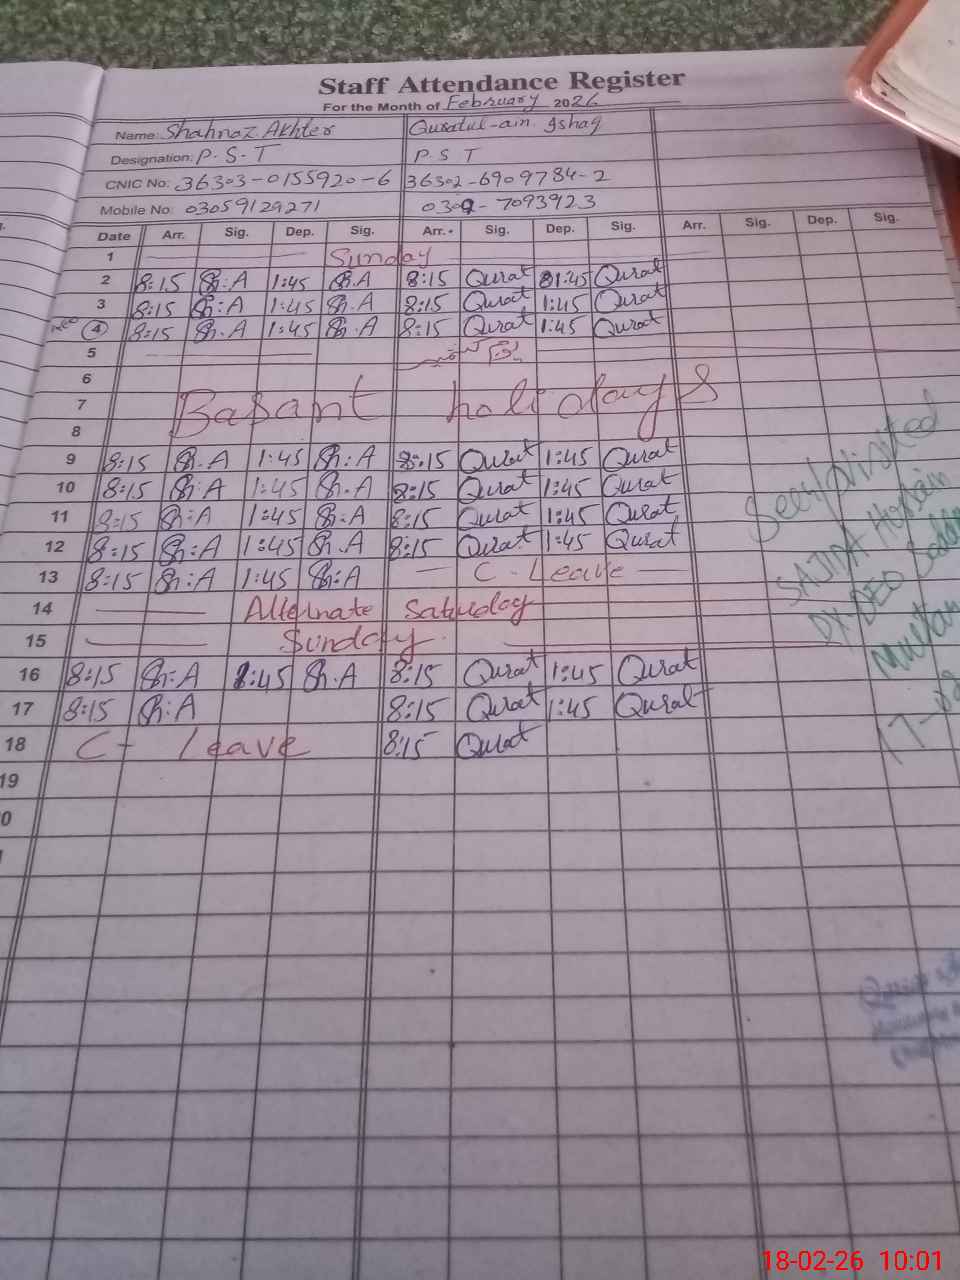 Staff Attendance Register
For the Month of February 2026
Name: Shahnaz Akhter Quratul-ain Ishaq
Designation: P.S.T P S T
CNIC No: 36303-0155920-6 36302-6909784-2
Mobile No: 03059129271 0309-7093923
Date Arr. Sig. Dep. Sig. Arr. Sig. Dep. Sig. Arr. Sig. Dep. Sig.
1 Sunday
2 8:15 Sh:A 1:45 Sh.A 8:15 Qurat 1:45 Qurat
3 8:15 Sh:A 1:45 Sh.A 8:15 Qurat 1:45 Qurat
4 8:15 Sh:A 1:45 Sh.A 8:15 Qurat 1:45 Qurat
5
6
7 Basant holidays
8
9 8:15 Sh.A 1:45 Sh:A 8:15 Qurat 1:45 Qurat
10 8:15 Sh:A 1:45 Sh.A 8:15 Qurat 1:45 Qurat
11 8:15 Sh:A 1:45 Sh:A 8:15 Qurat 1:45 Qurat
12 8:15 Sh:A 1:45 Sh.A 8:15 Qurat 1:45 Qurat
13 8:15 Sh:A 1:45 Sh:A C-Leave
14 Alternate Saturday
15 Sunday
16 8:15 Sh:A 1:45 Sh.A 8:15 Qurat 1:45 Qurat
17 8:15 Sh:A 8:15 Qurat 1:45 Qurat
18 C- Leave 8:15 Qurat
19
0
Seen/visited
SAJIDA Hussain
DEO
Multan
17-02
18-02-26 10:01